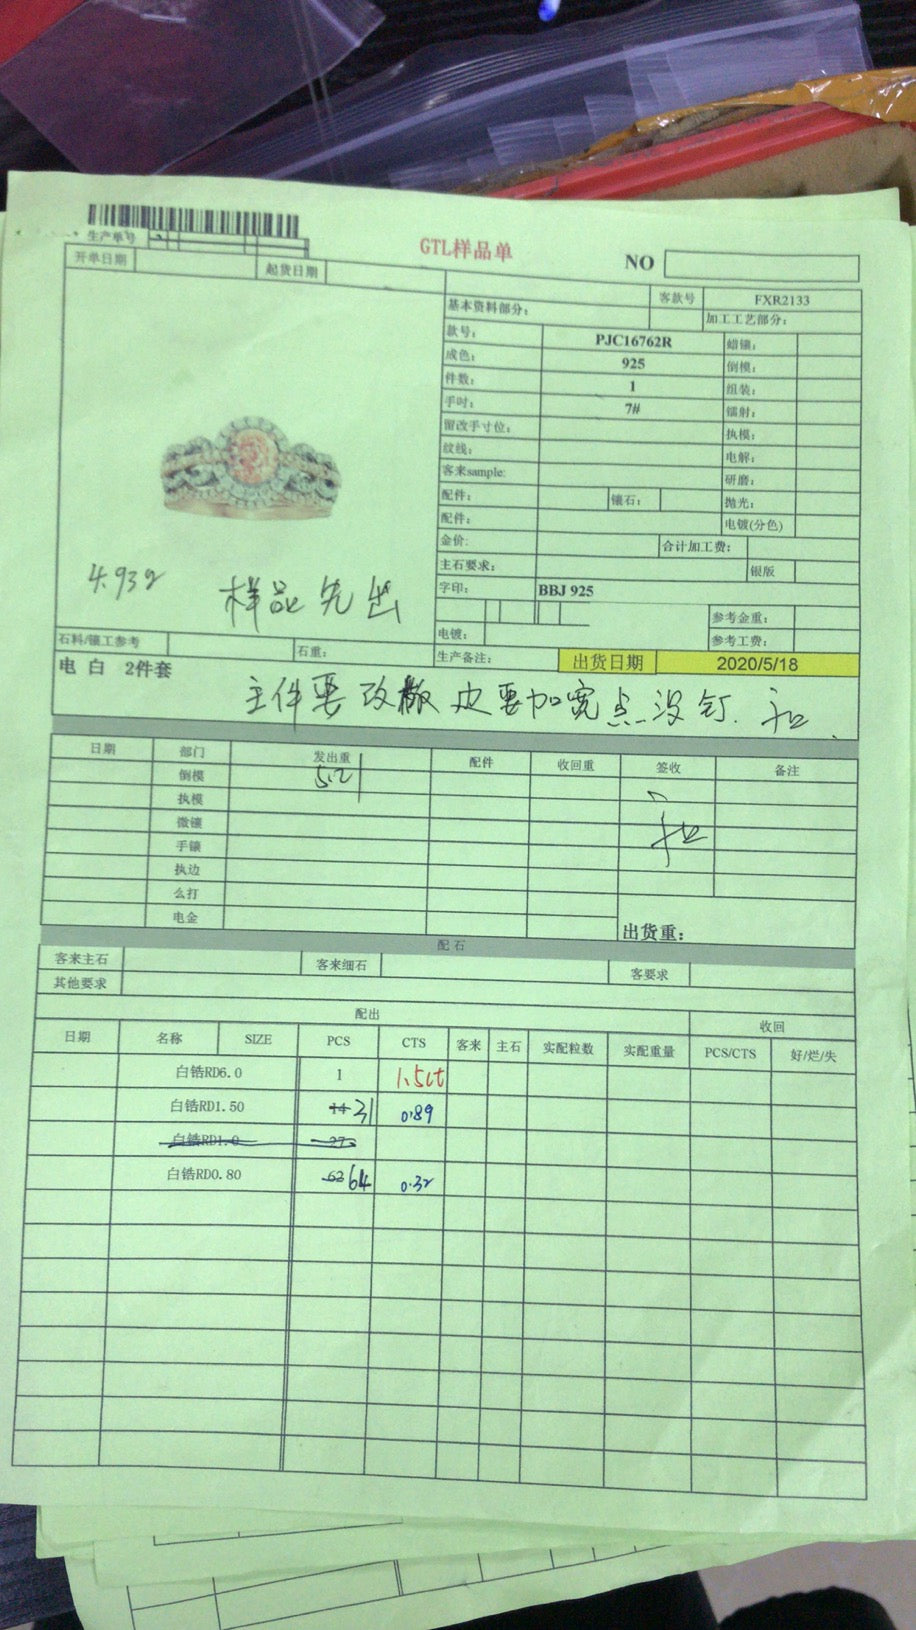 生产单号
GTL样品单
NO
开单日期 起货日期
客款号 FXR2133
基本资料部分: 加工工艺部分:
款号: PJC16762R 蜡镶:
成色: 925 倒模:
件数: 1 组装:
手吋: 7# 镭射:
留改手寸位: 执模:
纹线: 电解:
客来sample: 研磨:
配件: 镶石: 抛光:
配件: 电镀(分色)
金价: 合计加工费:
主石要求: 银版
字印: BBJ 925
参考金重:
电镀: 参考工费:
4.93g 样品先出
石料/镶工参考 石重: 生产备注: 出货日期 2020/5/18
电 白 2件套
主件要改 皮要加宽点没钉.
日期 部门 发出重 配件 收回重 签收 备注
倒模
执模
微镶
手镶
执边
么打
电金
出货重:
配石
客来主石 客来细石 客要求
其他要求
配出 收回
日期 名称 SIZE PCS CTS 客来 主石 实配粒数 实配重量 PCS/CTS 好/烂/失
白锆RD6.0 1 1.5ct
白锆RD1.50 14 31 0.89
白锆RD1.0 27
白锆RD0.80 62 64 0.32